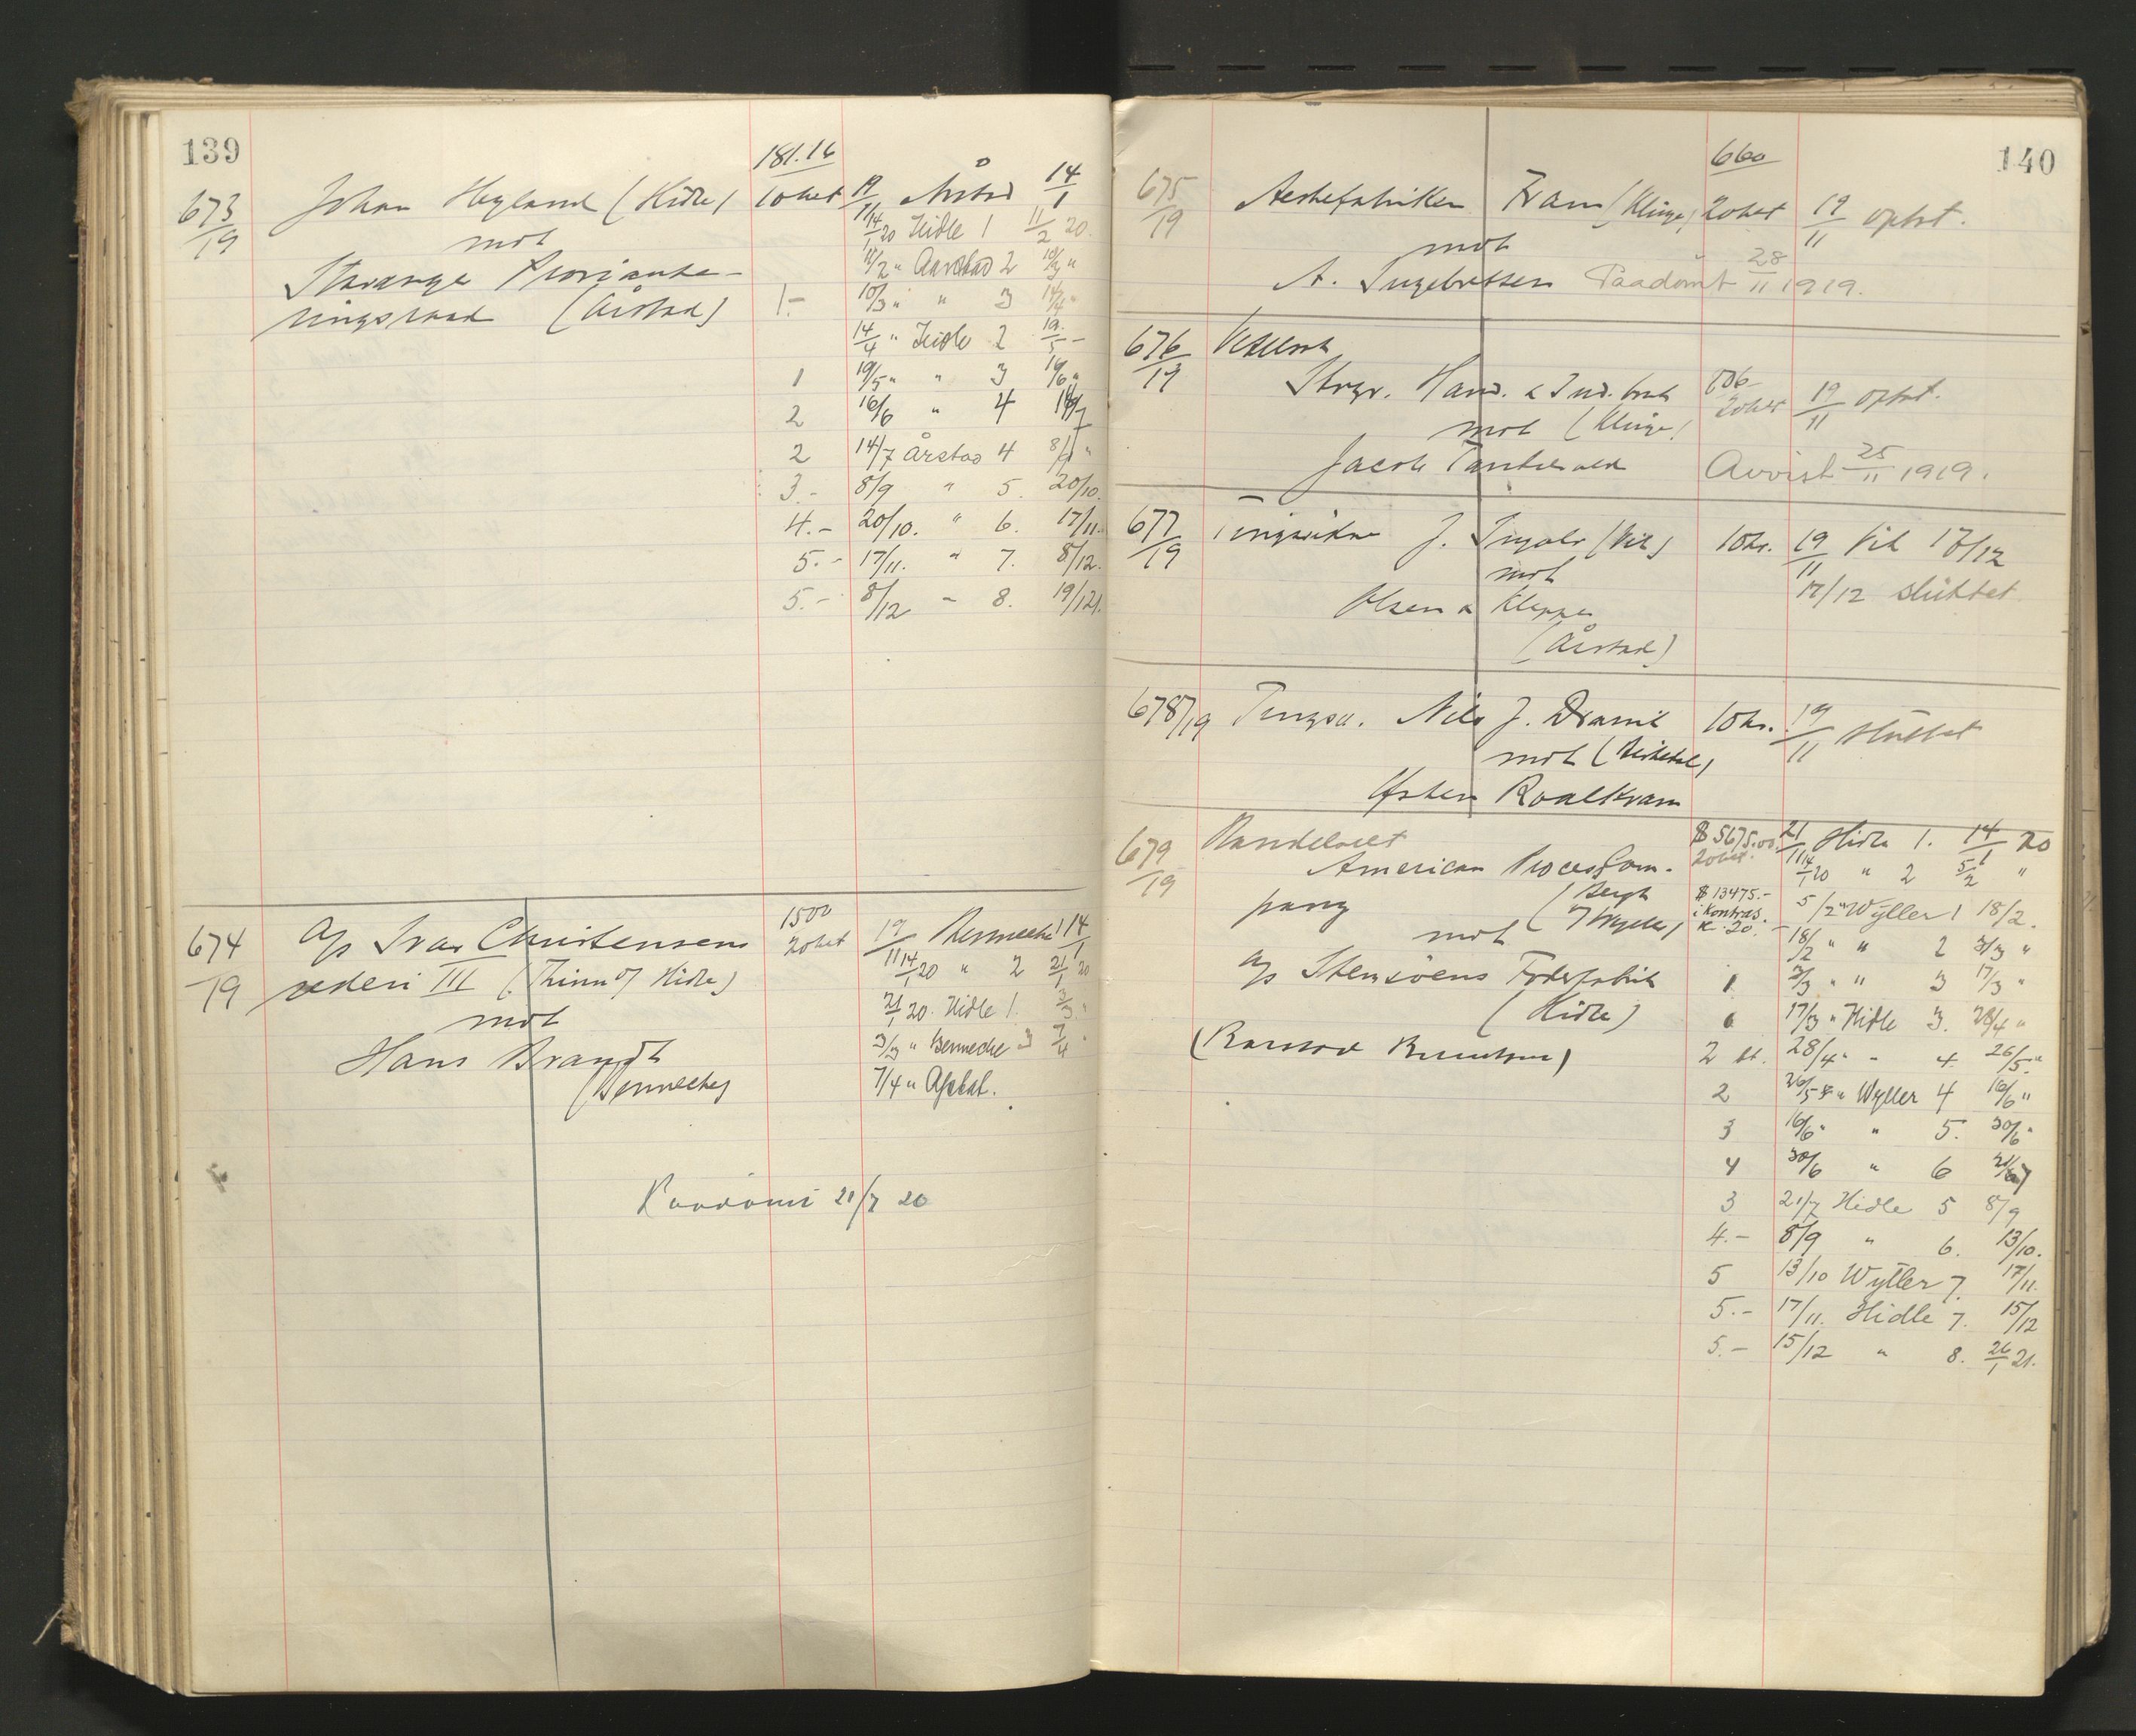 139
181.16
673/19 Johan Høyland (Hidle) 10 het 19/11 Årstad 14/1
mot 14/1 20 Hidle 1 11/2 20.
Stavanger Proviante- 11/2 " Aarstad 2 10/3 "
ringsraad (Årstad) 1.- 10/3 " " 3 14/4 "
14/4 " Hidle 2 19/5 -
1 19/5 " " 3 16/6 "
2 16/6 " 4
2 14/7 Årstad 4 8/9 "
3.- 8/9 " 5. 20/10.
4.- 20/10. " 6. 17/11.
5.- 17/11. " 7. 8/12.
5.- 8/12 - 8. 19/1 21.
1500
674/19 A/S Ivar Christensens 20 het 19/11 Benneche 1 14/1
rederi III (Thinn of Hidle) 14/1 20 " 2 21/1 20
mot 21/1 20. Hidle 1. 3/3 "
Hans Brandt 3/3 " Benneche 3 7/4 "
(Benneche) 7/4 " Afskst.
Paadömt 21/7 20
140
660
675/19 Aeskefabrikken Fram (Klinge) 20 het 19/11 optat.
mot
A. Ingebretsen Paadömt 28/11 1919.
676/19 Vexelret
Stvgr. Hand. & Ind. bank 20 het 19/11 optat.
mot (Klinge)
Jacob Avvist 25/11 1919.
677/19 Tingsvidne J. Ingolv (Vik) 10 kr. 19/11 Vik 17/12
mot 17/12 sluttet
Olsen & Kleppe
(Årstad)
678/19 Tingsv. Nils J. 10 kr. 19/11 sluttet
mot
Østen Roalkvam
679/19 Handelsret $ 5675.00 21/11 Hidle 1. 14/1 20
American Process Com- 20 het. 14/1 20 " 2 5/2 "
pany (Bergh $ 13475.- i kontras. K. 20. - 5/2 " Wyller 1 18/2.
mot of Wyller) 18/2 " " 2 3/3 "
A/S Stensöens Foderfabrik 1 3/3 " " 3 17/3 "
(Hidle) 17/3 " Hidle 3. 28/4 "
2 28/4 " - 4 26/5 "
2 26/5 " Wyller 4 16/6 "
3 16/6 " " 5. 30/6 "
4 30/6 " 6
3 21/7 Hidle 5 8/9
4.- 8/9 " 6. 13/10.
5 13/10 Wyller 7. 17/11.
5.- 17/11. Hidle 7. 15/12
5.- 15/12 " 8. 26/1 21.